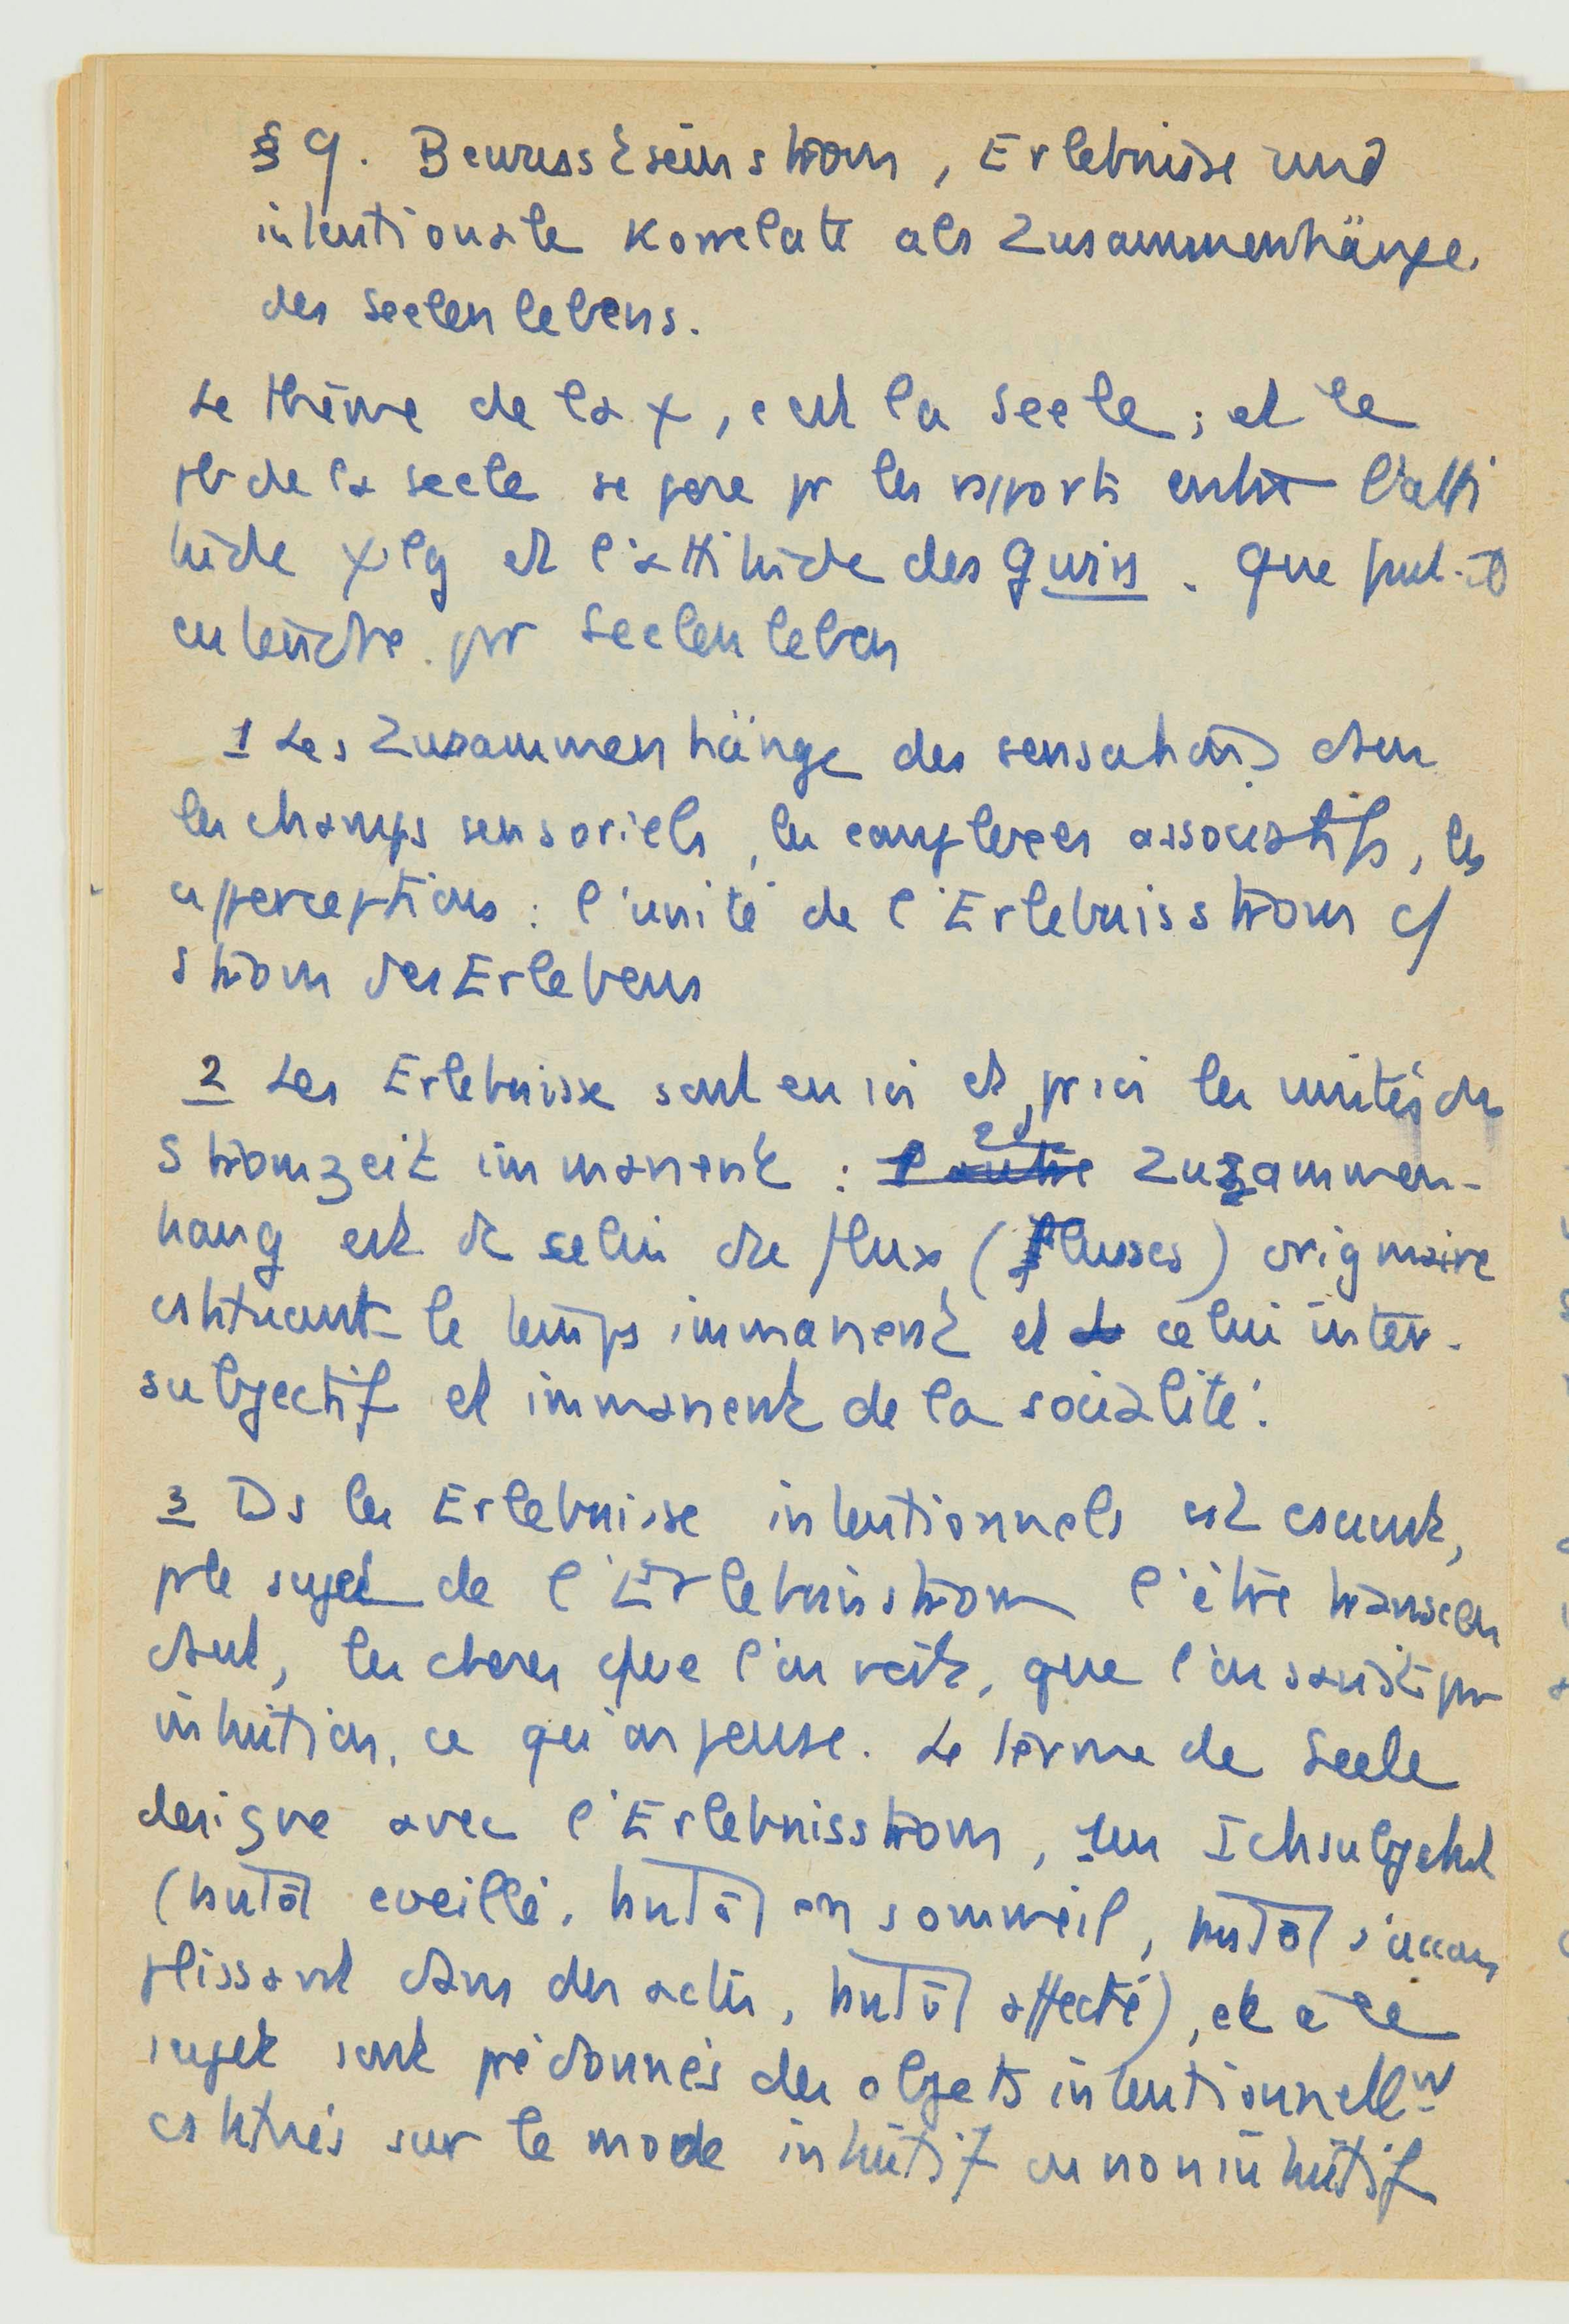 § 9. Bewusstseinsstrom, Erlebnisse und
intentionale Korrelate als Zusammenhänge
des Seelenlebens.
Le thème de la χ, c'est la Seele ; et le
pb de la Seele se pose pr les rapports entre l'atti
tude χlg et l'attitude des gwiss. Que faut-il
entendre pr Seelenleben
1 Les Zusammenhänge des sensations dans
les champs sensoriels, les complexes associatifs, les
aperceptions : l'unité de l'Erlebnisstrom cf
Strom des Erlebens
2 Les Erlebnisse sont en soi et pr soi les unités du
Stromzeit immanent : Zusammen-
hang est de celui du flux (Flusses) originaire
cstituant le temps immanent et celui inter-
subjectif et immanent de la socialité.
3 Ds les Erlebnisse intentionnels est csciant,
pr le sujet de l'Erlebnisstrom l'être transcen
dant, les choses que l'on voit, que l'on saisit par
intuition, ce qu'on pense. Le terme de Seele
designe avec l'Erlebnisstrom, un Ichsubjekt
(tantôt eveillé, tantôt en sommeil, tantôt s'accom
plissant dans des actes, tantôt affecté), et à ce
sujet sont prédonnés des objets intentionnellt
cstitués sur le mode intuitif ou non intuitif